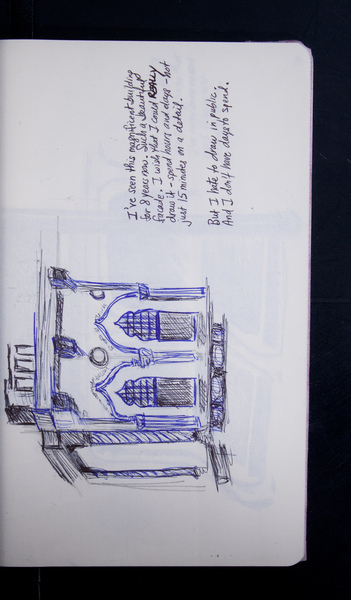 I've seen this magnificent building
for 8 years now. Such a beautiful
facade. I wish that I could REALLY
draw it - spend hours and days - not
just 15 minutes on a detail.
But I hate to draw in public.
And I don't have days to spend.